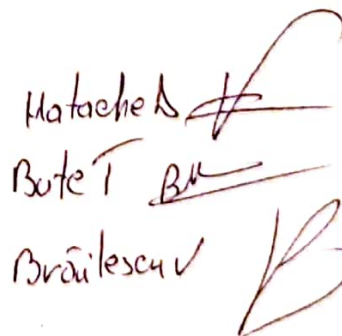 Matache D
Bute T
Brăilescu V